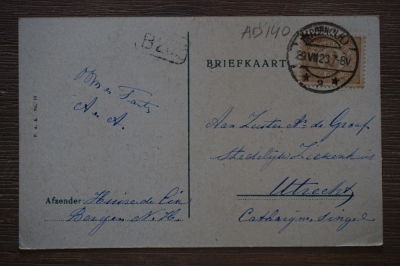 AD 140
BERGEN (N.H.)
29 VII 23 7-8V
BRIEFKAART
A en A.
Aan Zuster A. de Graaf
Stedelijk Ziekenhuis
Utrecht
Catharijne Singel
Afzender Huize de
Bergen N.H.